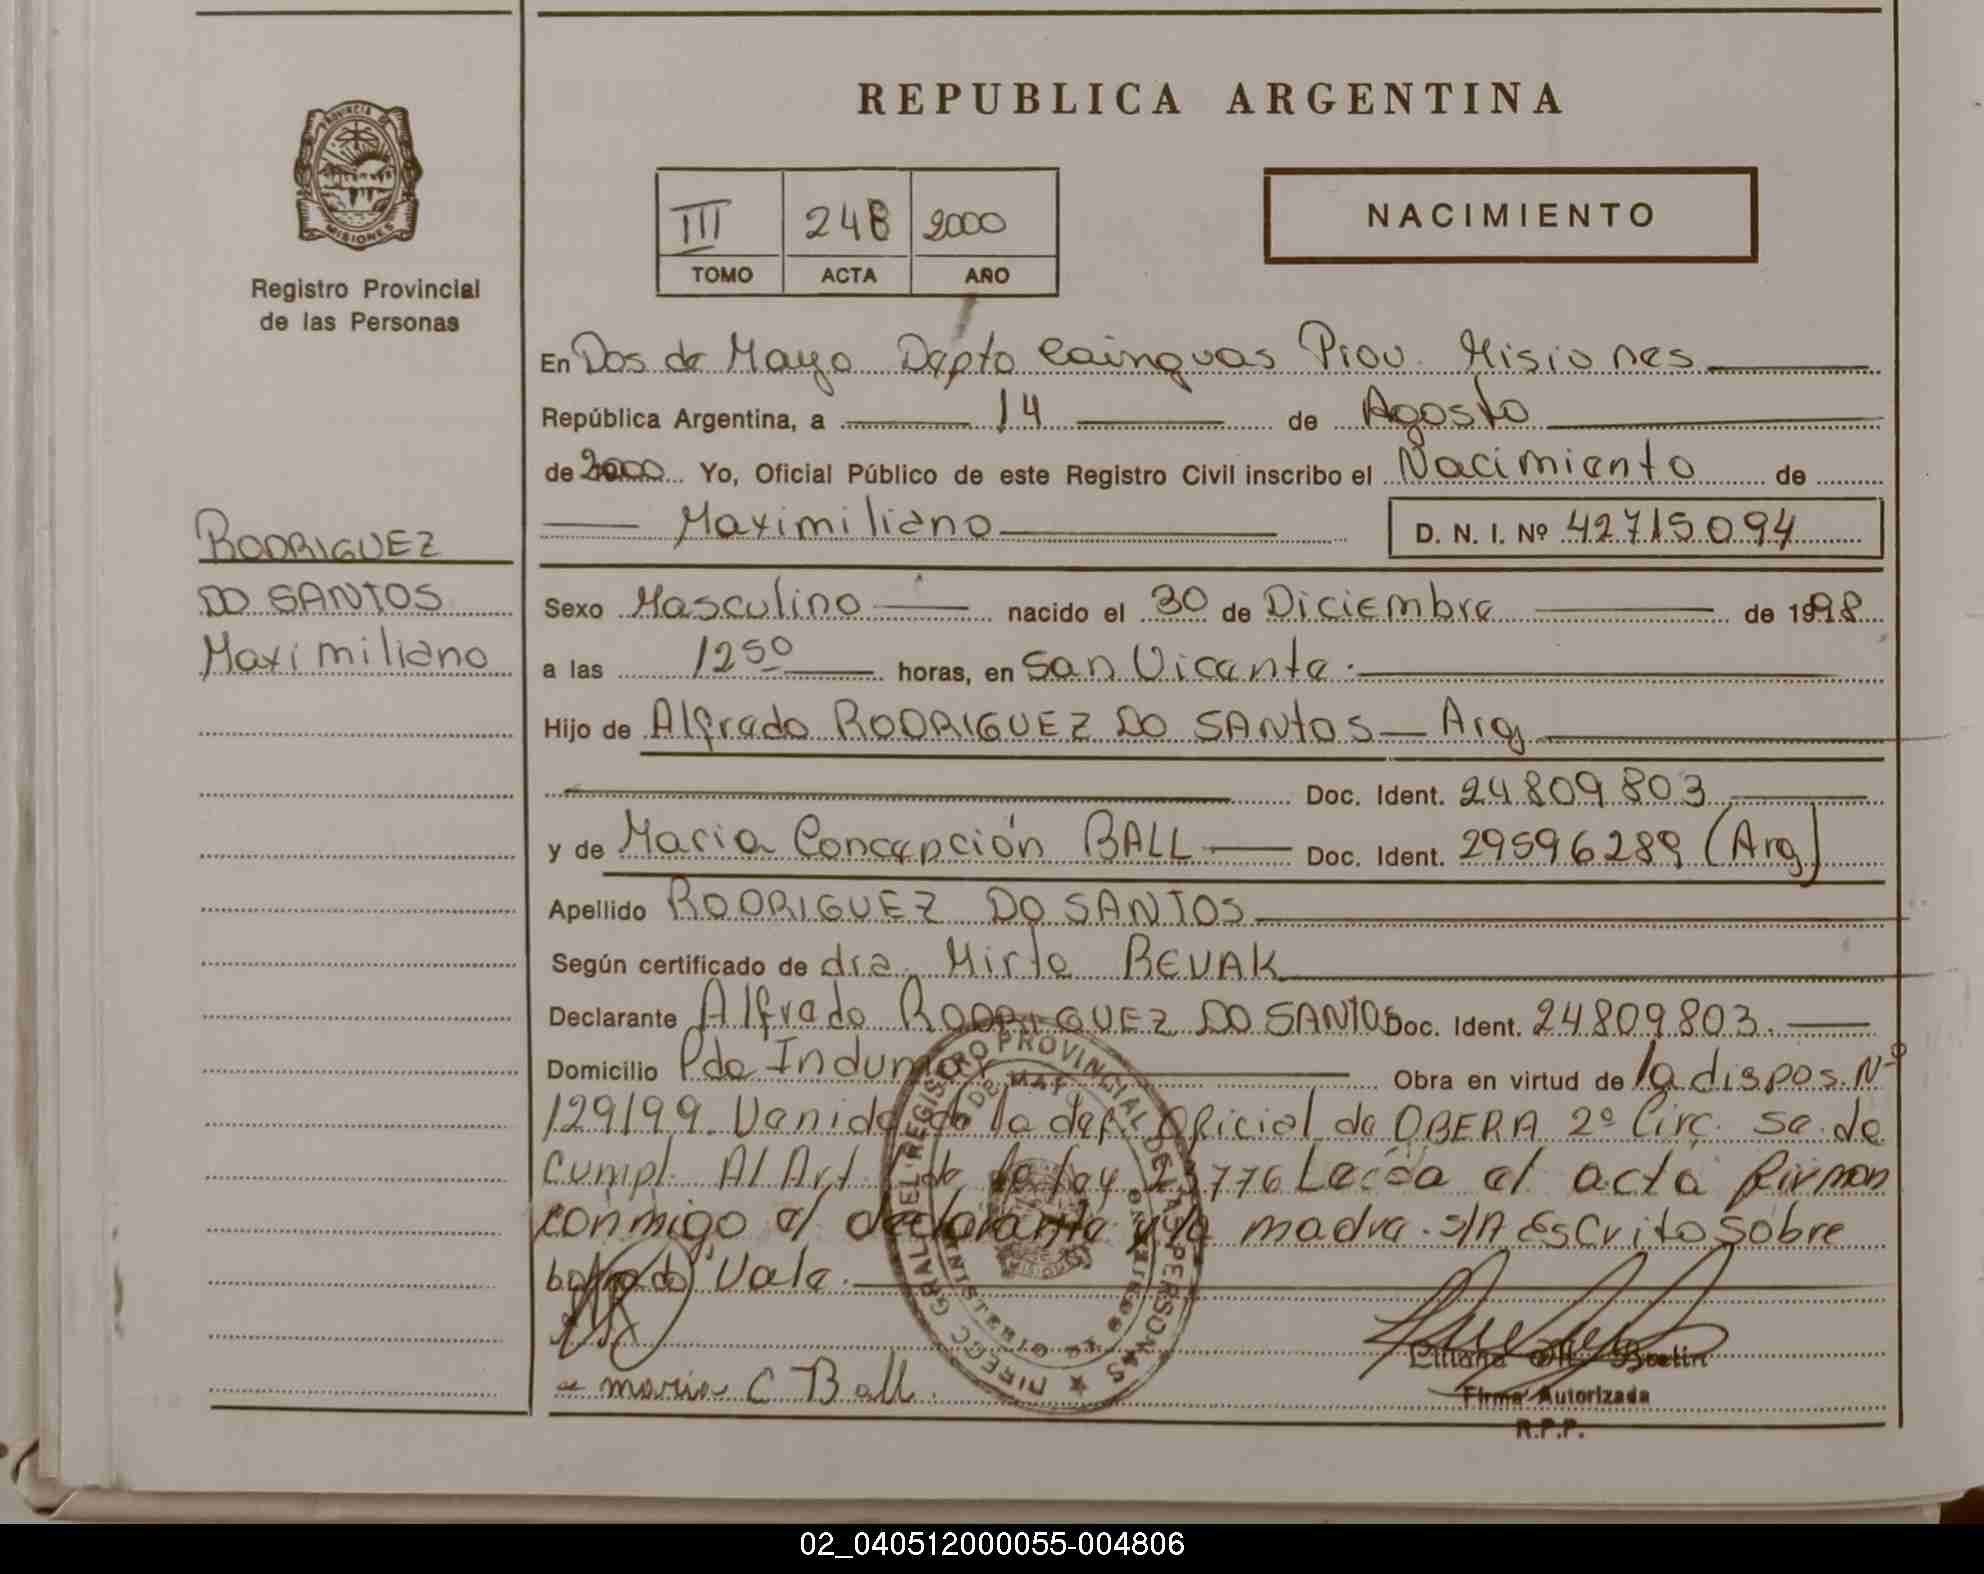 REPUBLICA ARGENTINA
PROVINCIA DE
MISIONES
Registro Provincial
de las Personas
III 248 2000
TOMO ACTA AÑO
NACIMIENTO
En Dos de Mayo Depto Cainguas Prov. Misiones
República Argentina, a 14 de Agosto
de 2000 Yo, Oficial Público de este Registro Civil inscribo el Nacimiento de
Maximiliano D. N. I. Nº 42715094
RODRIGUEZ
DO SANTOS
Maximiliano
Sexo Masculino nacido el 30 de Diciembre de 1998
a las 12 50 horas, en San Vicente.
Hijo de Alfredo RODRIGUEZ DO SANTOS — Arg
Doc. Ident. 24809803
y de Maria Concepción BALL Doc. Ident. 29596289 (Arg)
Apellido RODRIGUEZ DO SANTOS
Según certificado de dra. Mirta REVAK
Declarante Alfredo RODRIGUEZ DO SANTOS Doc. Ident. 24809803.
Domicilio Pde Indumar Obra en virtud de la dispos. Nº
129/99 Venida de la def. Oficial de OBERA 2º Circ. se de
Cumpl. Al Art. de la ley 23776 Leída el acta firman
conmigo el declarante y la madre. S/A Escrito sobre
borrado Vale.
maria C Ball
DIRECC GRAL DEL REGISTRO PROVINCIAL DE LAS PERSONAS
DOS DE MAYO
MISIONES
Firma Autorizada
R.P.P.
02_040512000055-004806